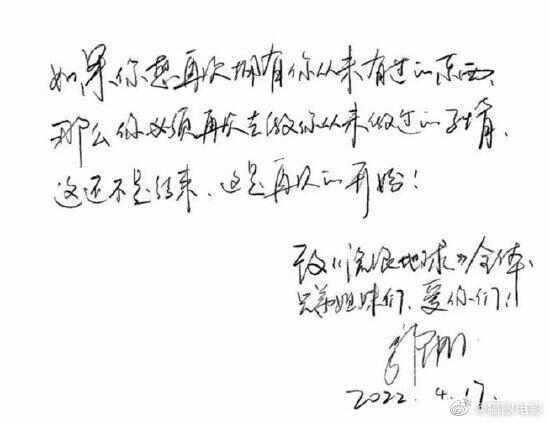 如果你想再次拥有你从来有过的东西，
那么你必须再次去做你从来做过的事情，
这还不是结束、这是再次的开始！
致《流浪地球》全体
兄弟姐妹们、爱你们！
2022.4.17.
电影